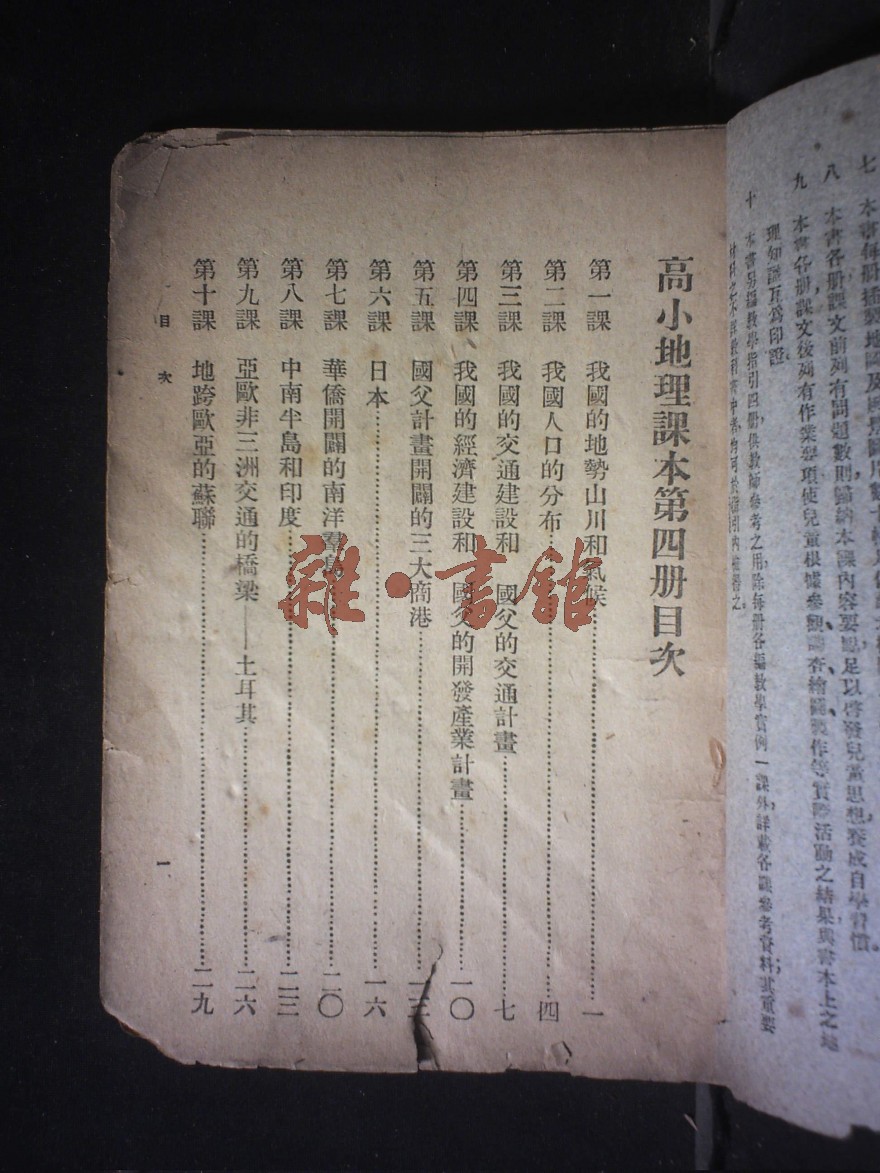 七　本書每册插製地圖及
八　本書各册課文前列有問題數則歸納本課內容要點足以啓發兒童思想養成自學習慣。
九　本書各册課文後列有作業要項使兒童根據參觀、調查、繪圖、製作等實際活動之結果與書本上之地
理知識互爲印證
十　本書另編教學指引四册，供教師參考之用，除每册各編教學實例一課外，詳載各課參考資料；其重要
高小地理課本第四册目次
第一課　我國的地勢山川和氣候……一
第二課　我國人口的分布……四
第三課　我國的交通建設和　國父的交通計畫……七
第四課　我國的經濟建設和　國父的開發產業計畫……一〇
第五課　國父計畫開闢的三大商港……一三
第六課　日本……一六
第七課　華僑開闢的南洋羣島……二〇
第八課　中南半島和印度……二三
第九課　亞歐非三洲交通的橋梁——土耳其……二六
第十課　地跨歐亞的蘇聯……二九
目次　一
雜·書館